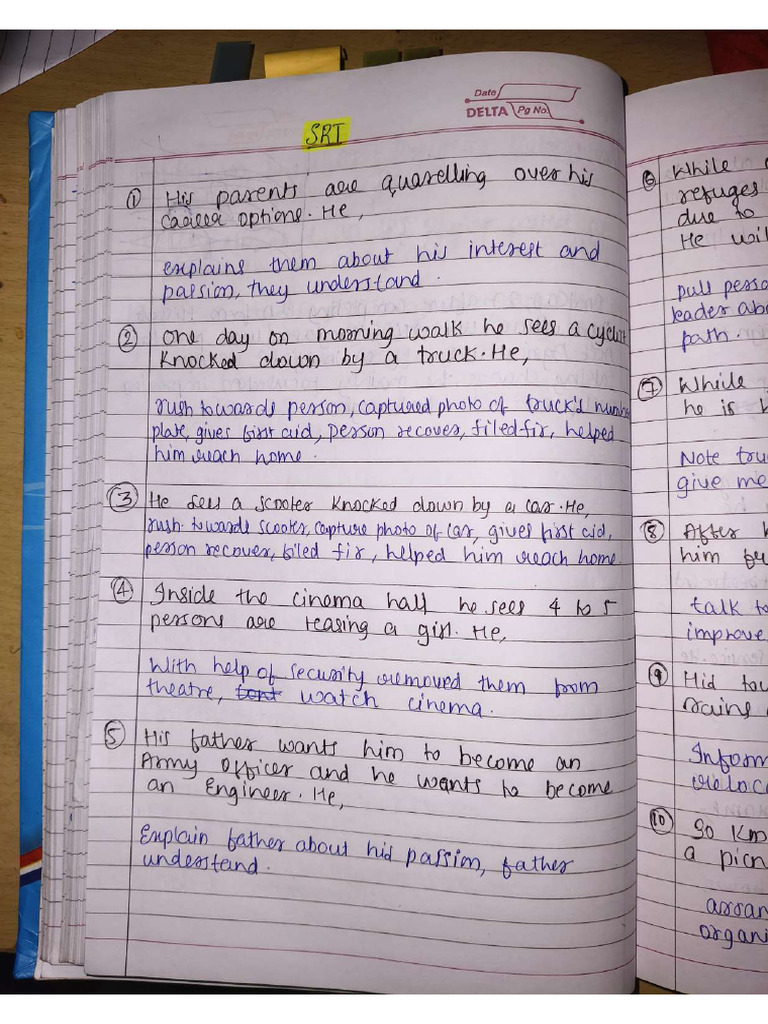 Date
DELTA Pg No.
SRT
① His parents are quarelling over his
career options. He,
explains them about his interest and
passion, they understand.
② One day on morning walk he sees a cyclist
knocked down by a truck. He,
rush towards person, captured photo of truck's number
plate, gives first aid, person recover, filed fir, helped
him reach home.
③ He sees a scooter knocked down by a car. He,
rush towards scooter, capture photo of car, gives first aid,
person recover, filed fir, helped him reach home.
④ Inside the cinema hall he sees 4 to 5
persons are teasing a girl. He,
With help of security removed them from
theatre, watch cinema.
⑤ His father wants him to become an
Army Officer and he wants to become
an Engineer. He,
Explain father about his passion, father
understand.
⑥ While
refuges
due to
He
pull
leader
path.
⑦ While
he is
Note
give me
⑧ After
him
talk to
improve
⑨ His
rains
Inform
⑩ 50 Km
a picn
organi